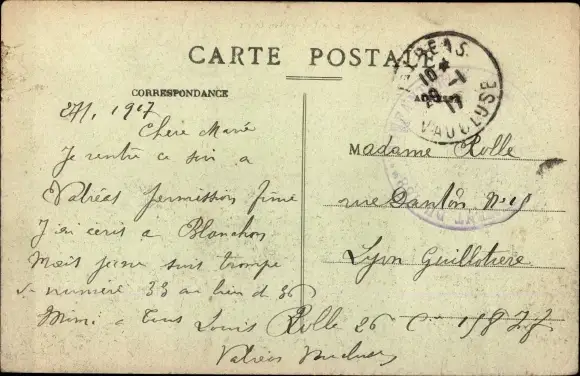 CARTE POSTALE
CORRESPONDANCE
1917
Chere Marie
Je rentre ce soir a
Valréas permission finie
J'ai ecris a Blanchon
Mais je me suis trompe
numéro 33 au lieu d 36
Mimi a tous Louis Rolle 26
Valréas Vaucluse
VALREAS
10 *
29 -1
17
VAUCLUSE
Madame Rolle
rue Danton N°
Lyon Guillotiere